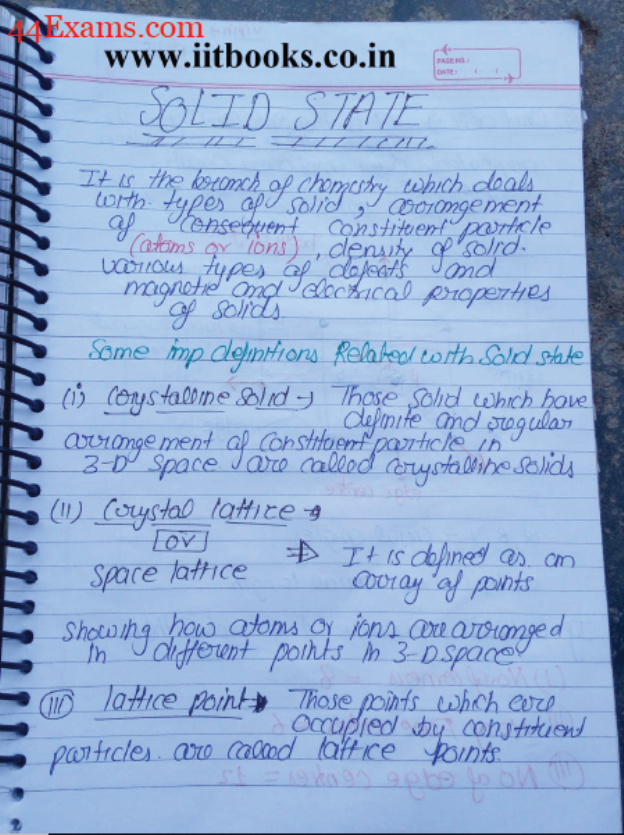 44Exams.com
www.iitbooks.co.in
PAGE NO.:
DATE: / /
SOLID STATE
It is the branch of chemistry which deals
with types of solid, arrangement
of consequent constituent particle
(atoms or ions), density of solid.
various types of defects and
magnetic and electrical properties
of solids.
Some imp definitions Related with Solid state
(i) Crystalline solid → Those solid which have
definite and regular
arrangement of constituent particle in
3-D space are called crystalline solids
(ii) Crystal lattice →
or
space lattice
⇒ It is defined as an
array of points
showing how atoms or ions are arranged
in different points in 3-D space
(iii) lattice point → Those points which are
occupied by constituent
particles are called lattice points.
(iii) No of edge center = 12